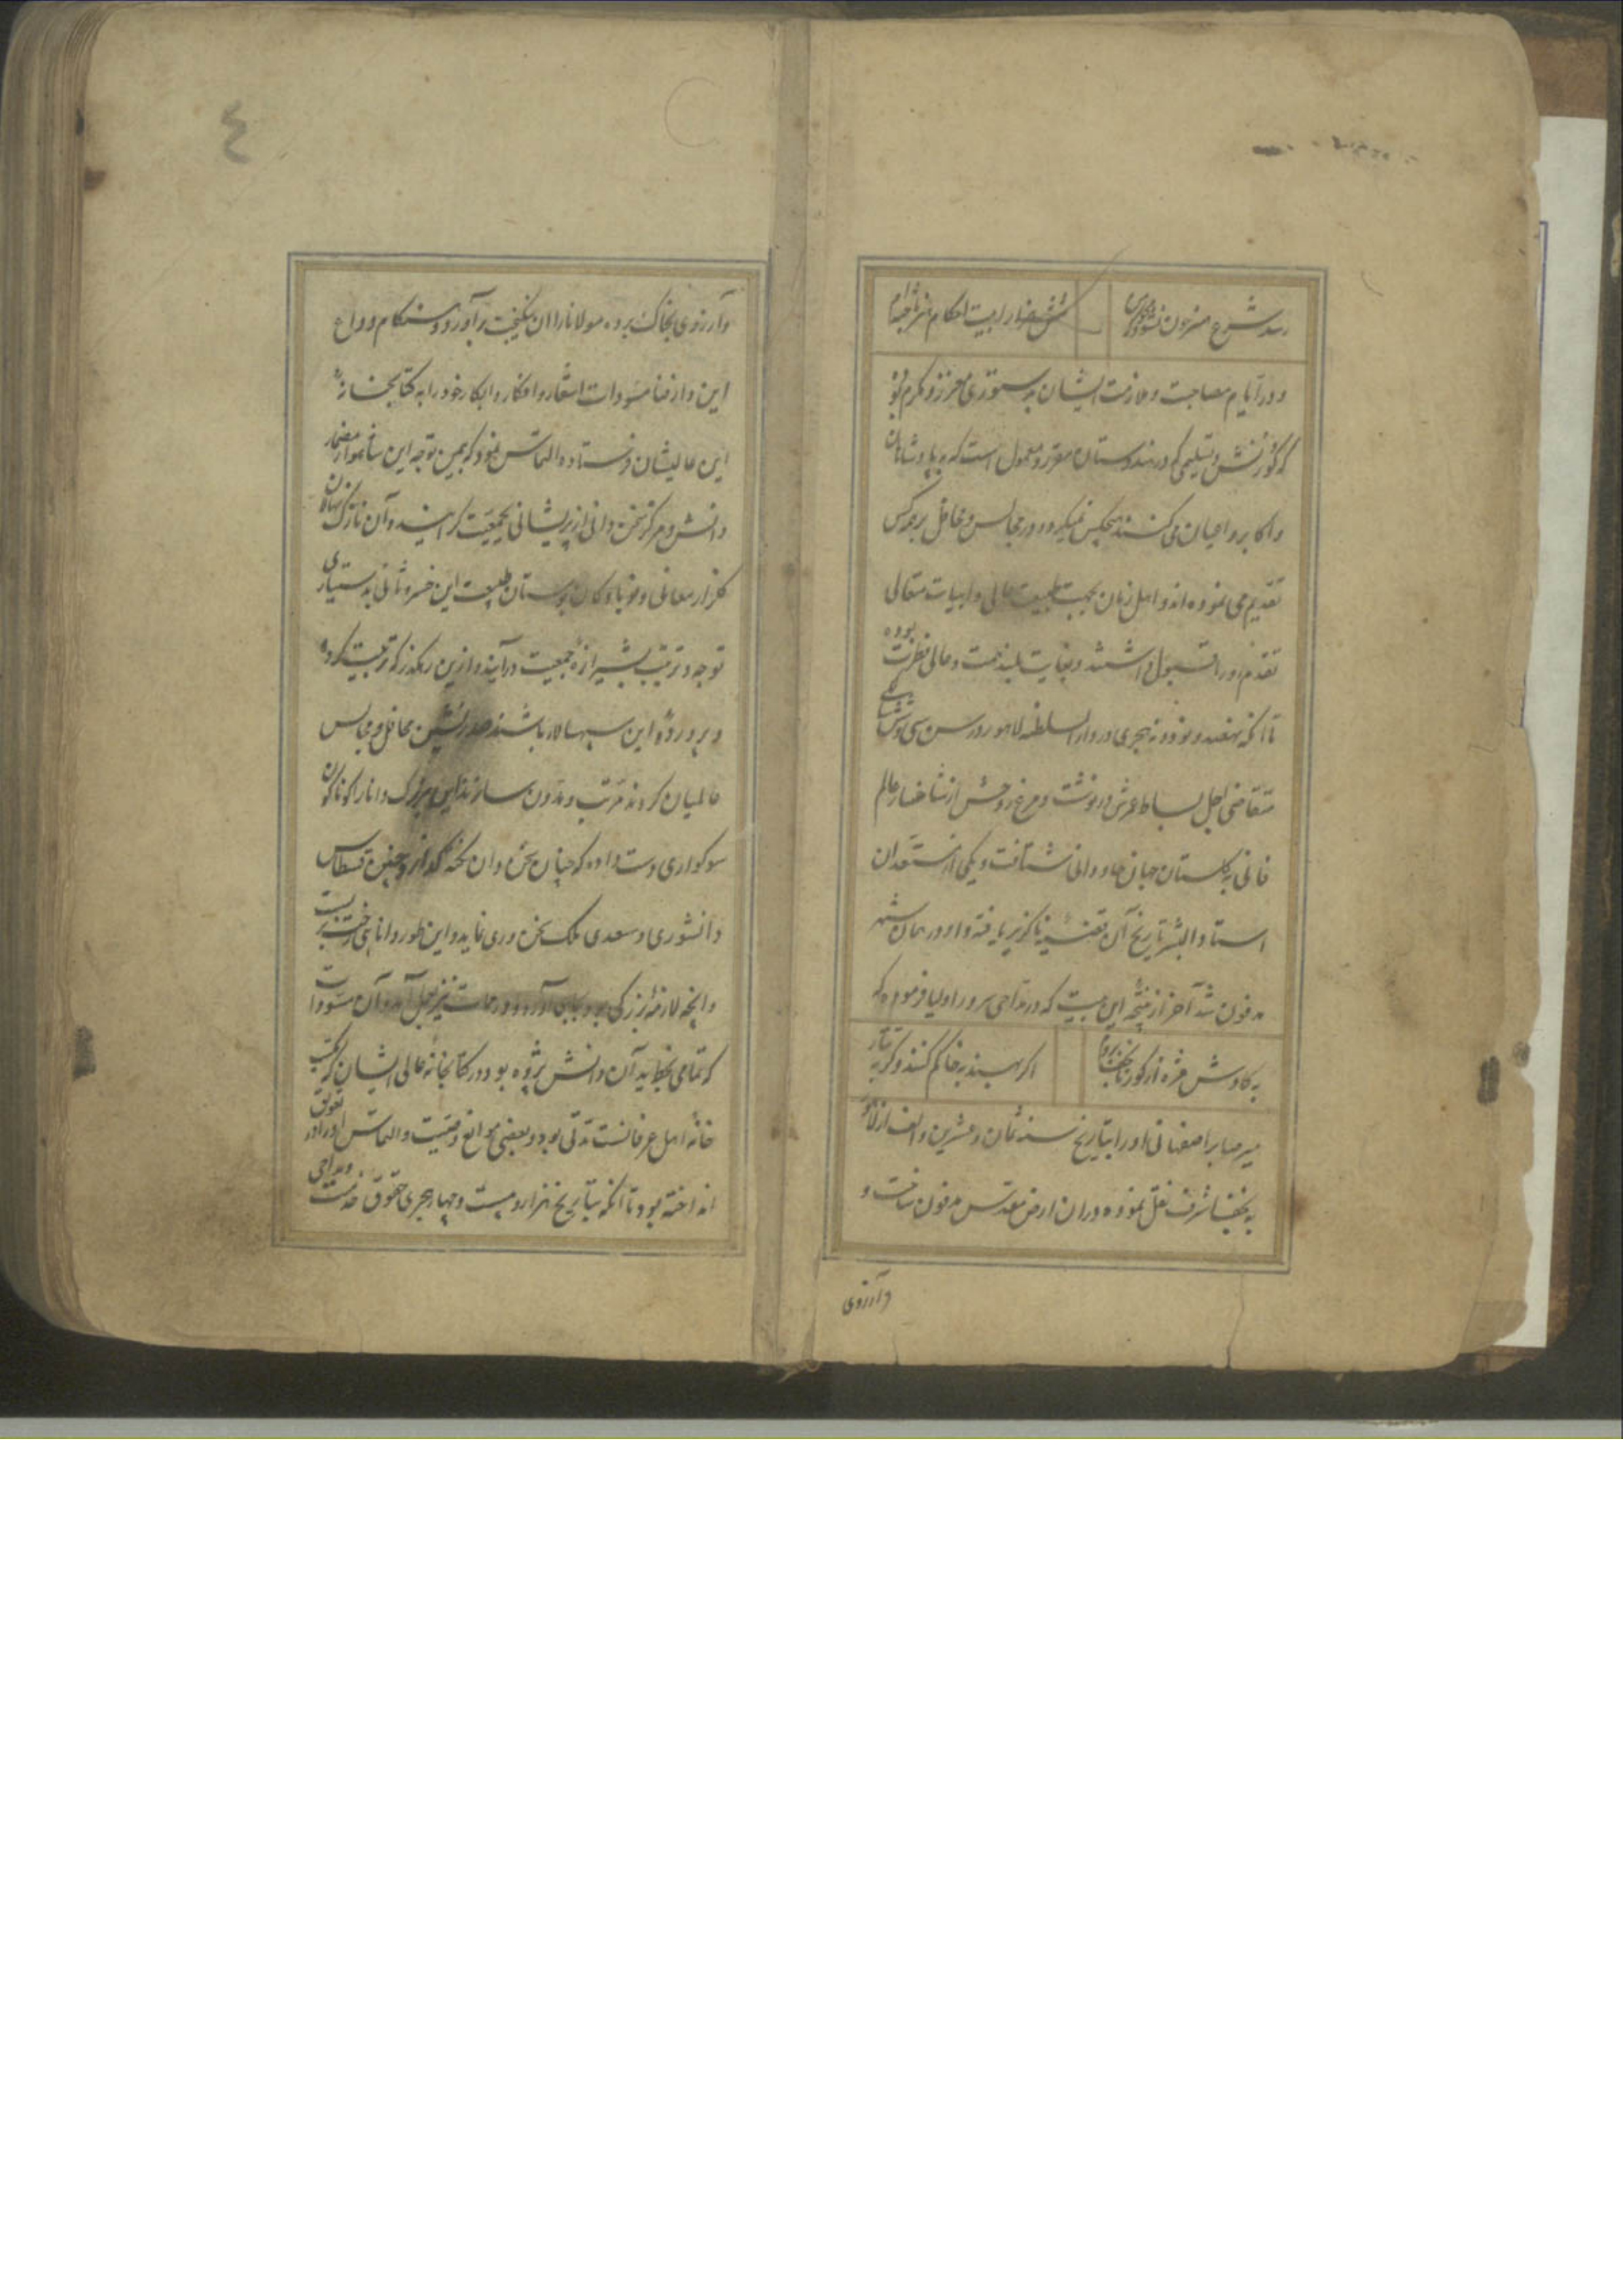 و در ایام مصاحبت و ملازمت ایشان به دستوری معزز و مکرم بود
که کورنش و تسلیمی که در هندوستان مقرر و معمول است که به پادشاهان
و اکابر و اعیان می کنند بهیچکس نمیکرد و در مجالس و محافل بر همه کس
تقدیم می نموده اند و اهل زمان بجهت طبیعت عالی و ابیات متعالی
تقدم او را قبول داشتند و بغایت بلند همت و عالی فطرت بوده
تا آنکه نهصد و نود و نه هجری در دار السلطنه لاهور در سن سی و شش سالگی
متقاضی اجل بساط عمرش درنوشت و مرغ روحش از شاخسار عالم
فانی به گلستان جهان جاودانی شتافت و یکی از مستعدان
استاد البشر تاریخ آن قضیه ناگزیر یافته و او در همان شهر
مدفون شد آخر از نتیجه این بیت که در مداحی سرور اولیا فرموده که
به کاوش مژه از گور تا نجف بروم
اگر به هند به خاکم کنند و گر به تتار
میر صابر اصفهانی او را بتاریخ سنه ثمان و عشرین و الف از لاهور
به نجف اشرف نقل نموده در ان ارض مقدس مدفون ساخت و
و آرزوی
و آرزوی بخاک برده مولانا را ان نیکبخت برآورد و هنگام وداع
این دار فنا مسودات اشعار و افکار و ابکار خود را به کتابخانهٔ
این عالیشان فرستاده التماس نمود که بیمن توجه این شاهسوار مضمار
دانش و مرکز سخن دانی از پریشانی بجمعیت گرایند و آن نازک نهالان
گلزار معانی و نوباوگان بوستان طبیعت این خسرو ثانی به دستیاری
توجه و ترتیب بشیرازه جمعیت درآیند و ازین رهگذر که تربیت کرده
و پروردهٔ این سپهسالار باشند صدرنشین محافل و مجالس
عالمیان گردند مرتب و مدون سازند این بزرگ دانا را گوناگون
سوکواری دست داده که چنان سخن دان نکته گذار و چنین قسطاس
دانشوری و سعدی ملک سخن وری نماید و این طور دانایی رخت بربست
و آنچه لازمهٔ بزرگی بود بجای آورد و در ممات نیز بعمل آمده آن مسودات
که تمامی بخط ید آن دانش پژوه بود در کتابخانه عالی ایشان که مکتب
خانه اهل عرفانست مدتی بود و بعضی موانع وقتیت و التماس او را در تعویق
انداخته بود تا آنکه بتاریخ هزار و بیست و چهار هجری حقوق خدمت و مداحی
٤